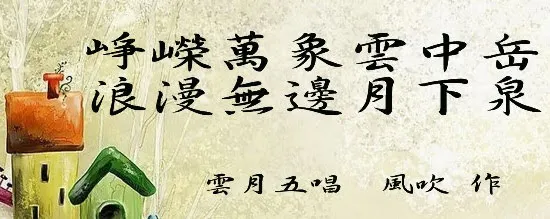 崢嶸萬象雲中岳
浪漫無邊月下泉
雲月五唱 風吹 作